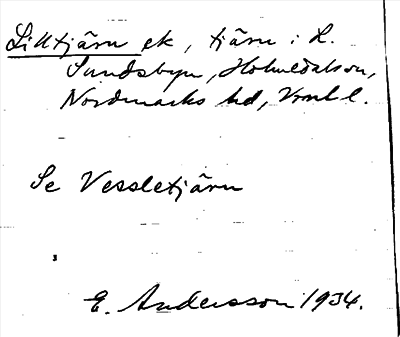 Lilltjärn ek, tjärn i L.
Sundsbyn, Holmedals sn,
Nordmarks hd, Vrml.
Se Vessletjärn
E. Andersson 1934.